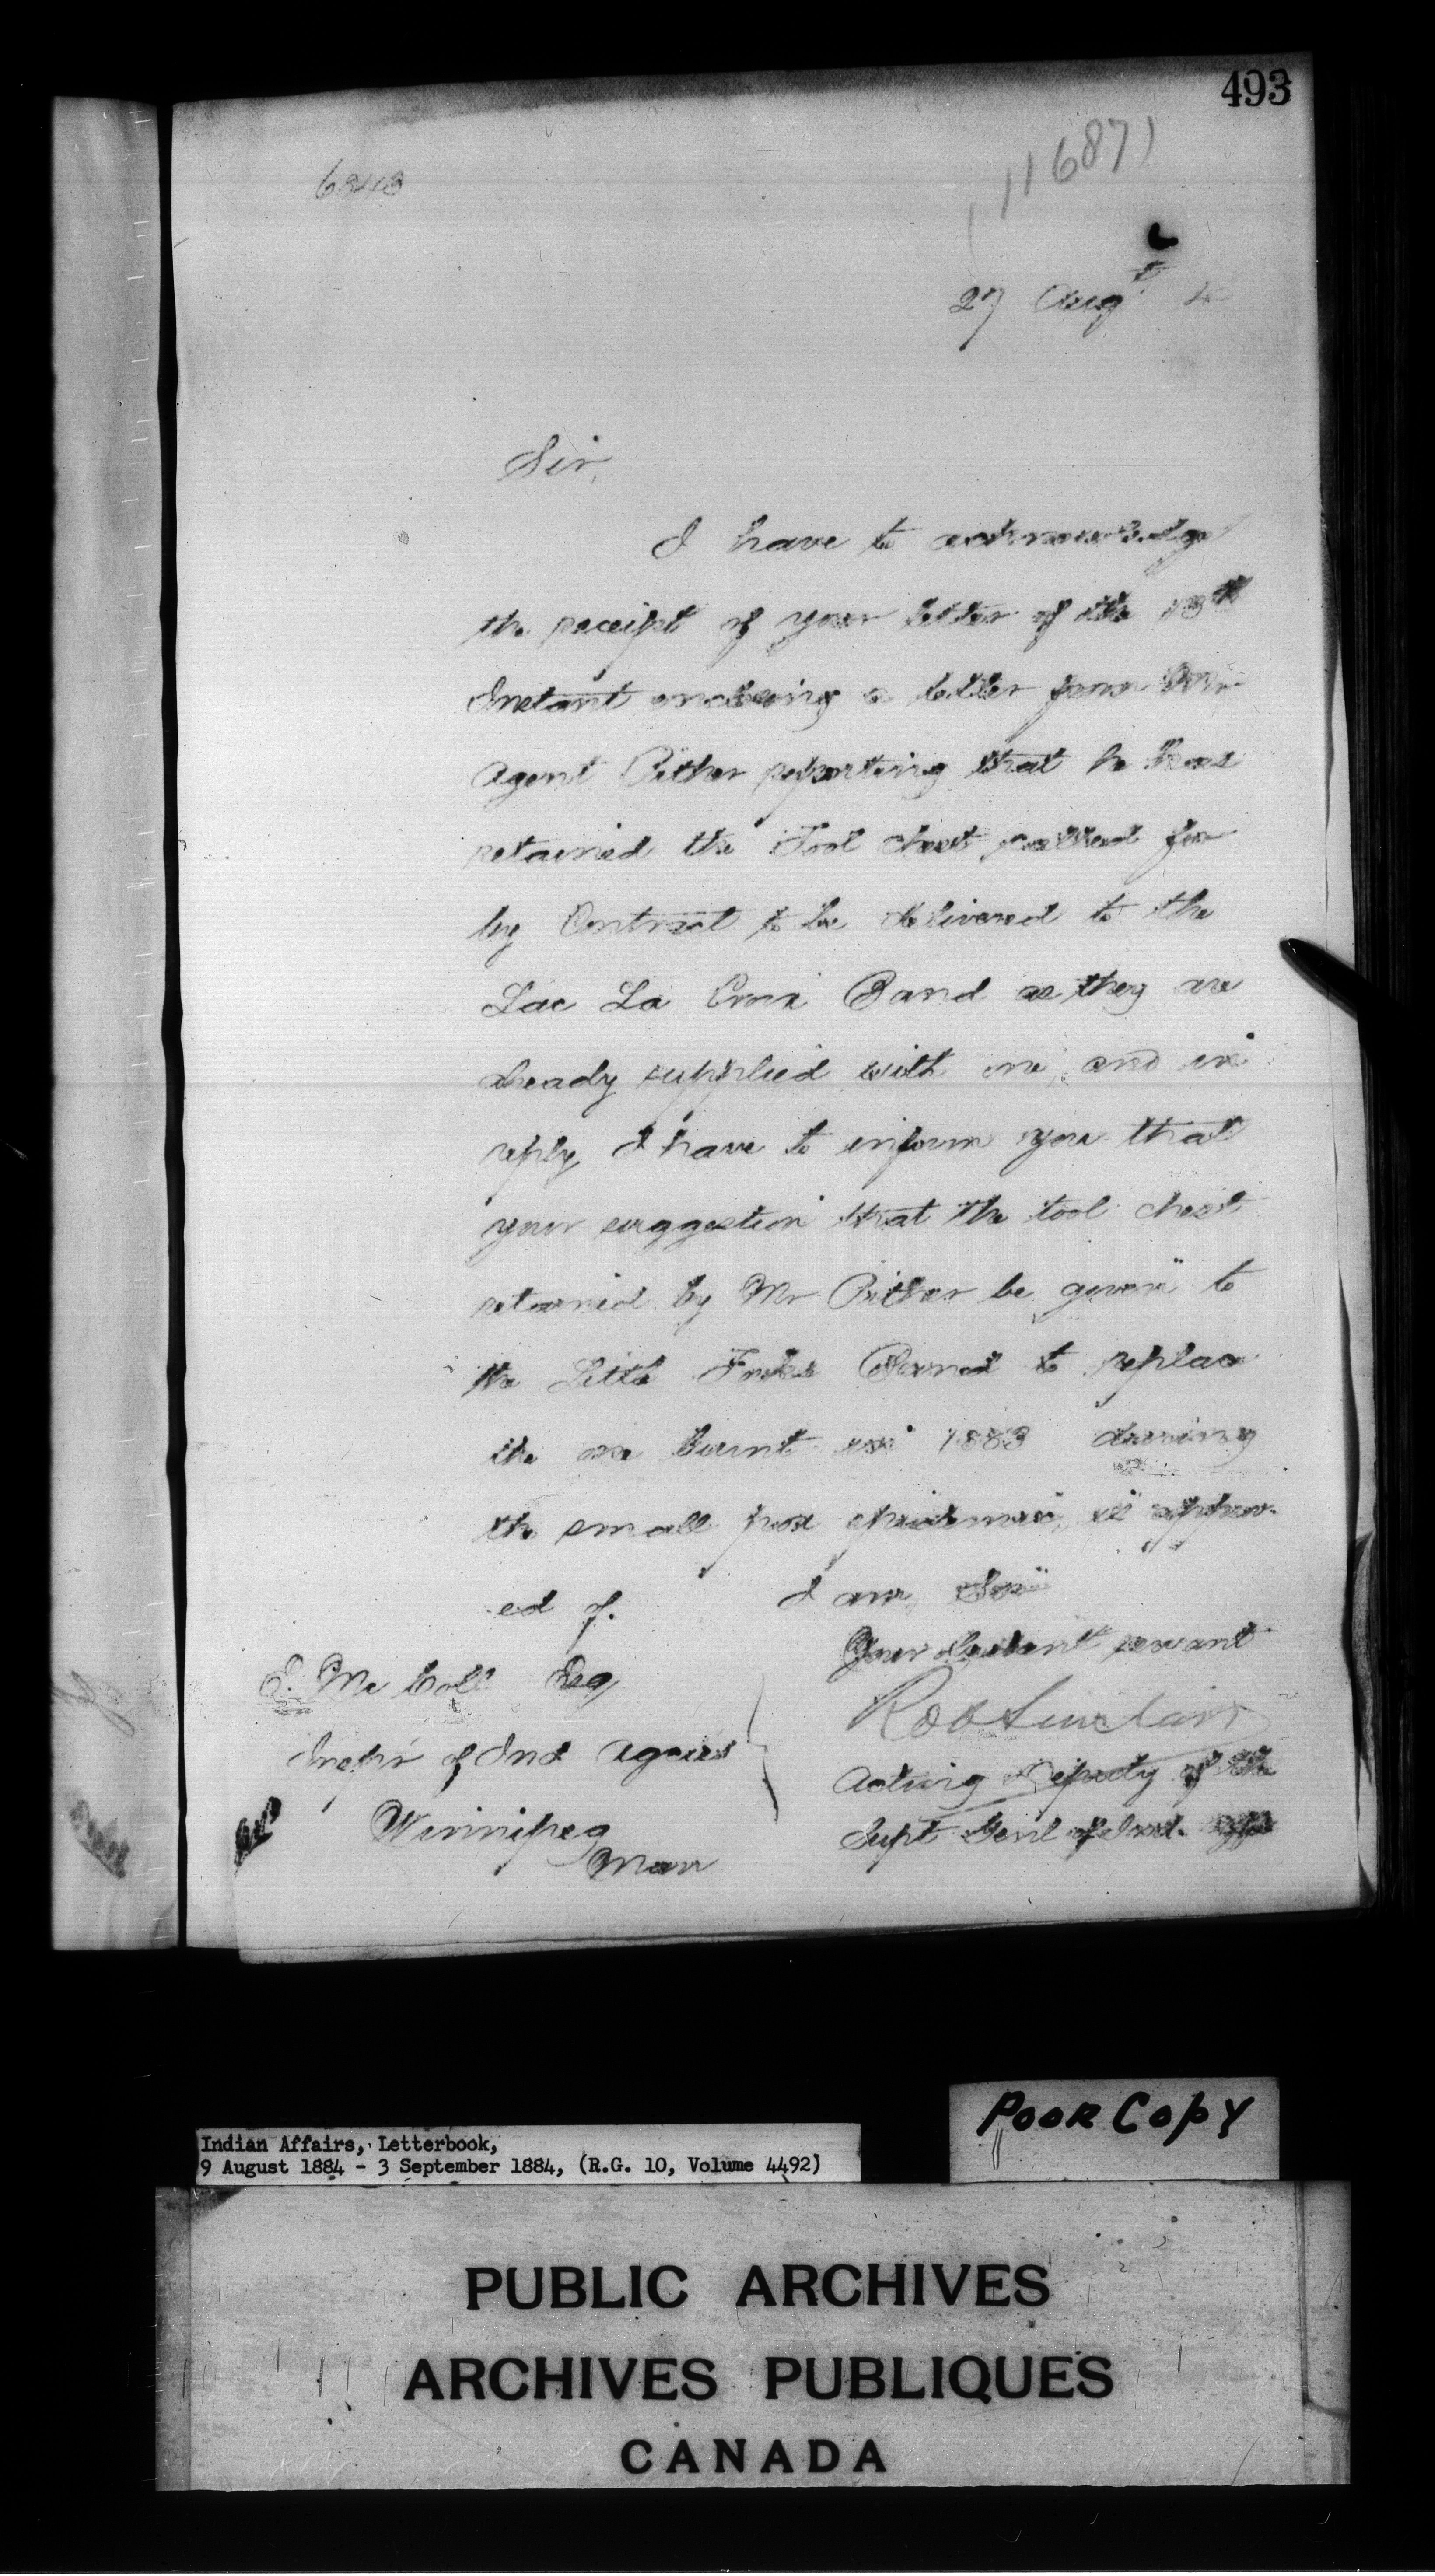 493
11687
27 Augt
Sir,
I have to acknowledge
the receipt of your letter of the 13th
Instant enclosing a letter from Mr
Agent Pither reporting that he has
retained the Tool chest called for
by Contract to be delivered to the
Lac La Croix Band as they are
already supplied with one, and in
reply I have to inform you that
your suggestion that the tool chest
retained by Mr Pither be given to
the Little Forks Band to replace
the one burnt in 1883 during
the small pox epidemic, is approv-
ed of.
I am, Sir
Your obedient servant
Rob Sinclair
Acting Deputy of the
Supt Genl of Ind. Affs
E. McColl Esq
Inspr of Ind Agcies
Winnipeg
Man
Poor Copy
Indian Affairs, Letterbook,
9 August 1884 - 3 September 1884, (R.G. 10, Volume 4492)
PUBLIC ARCHIVES
ARCHIVES PUBLIQUES
CANADA